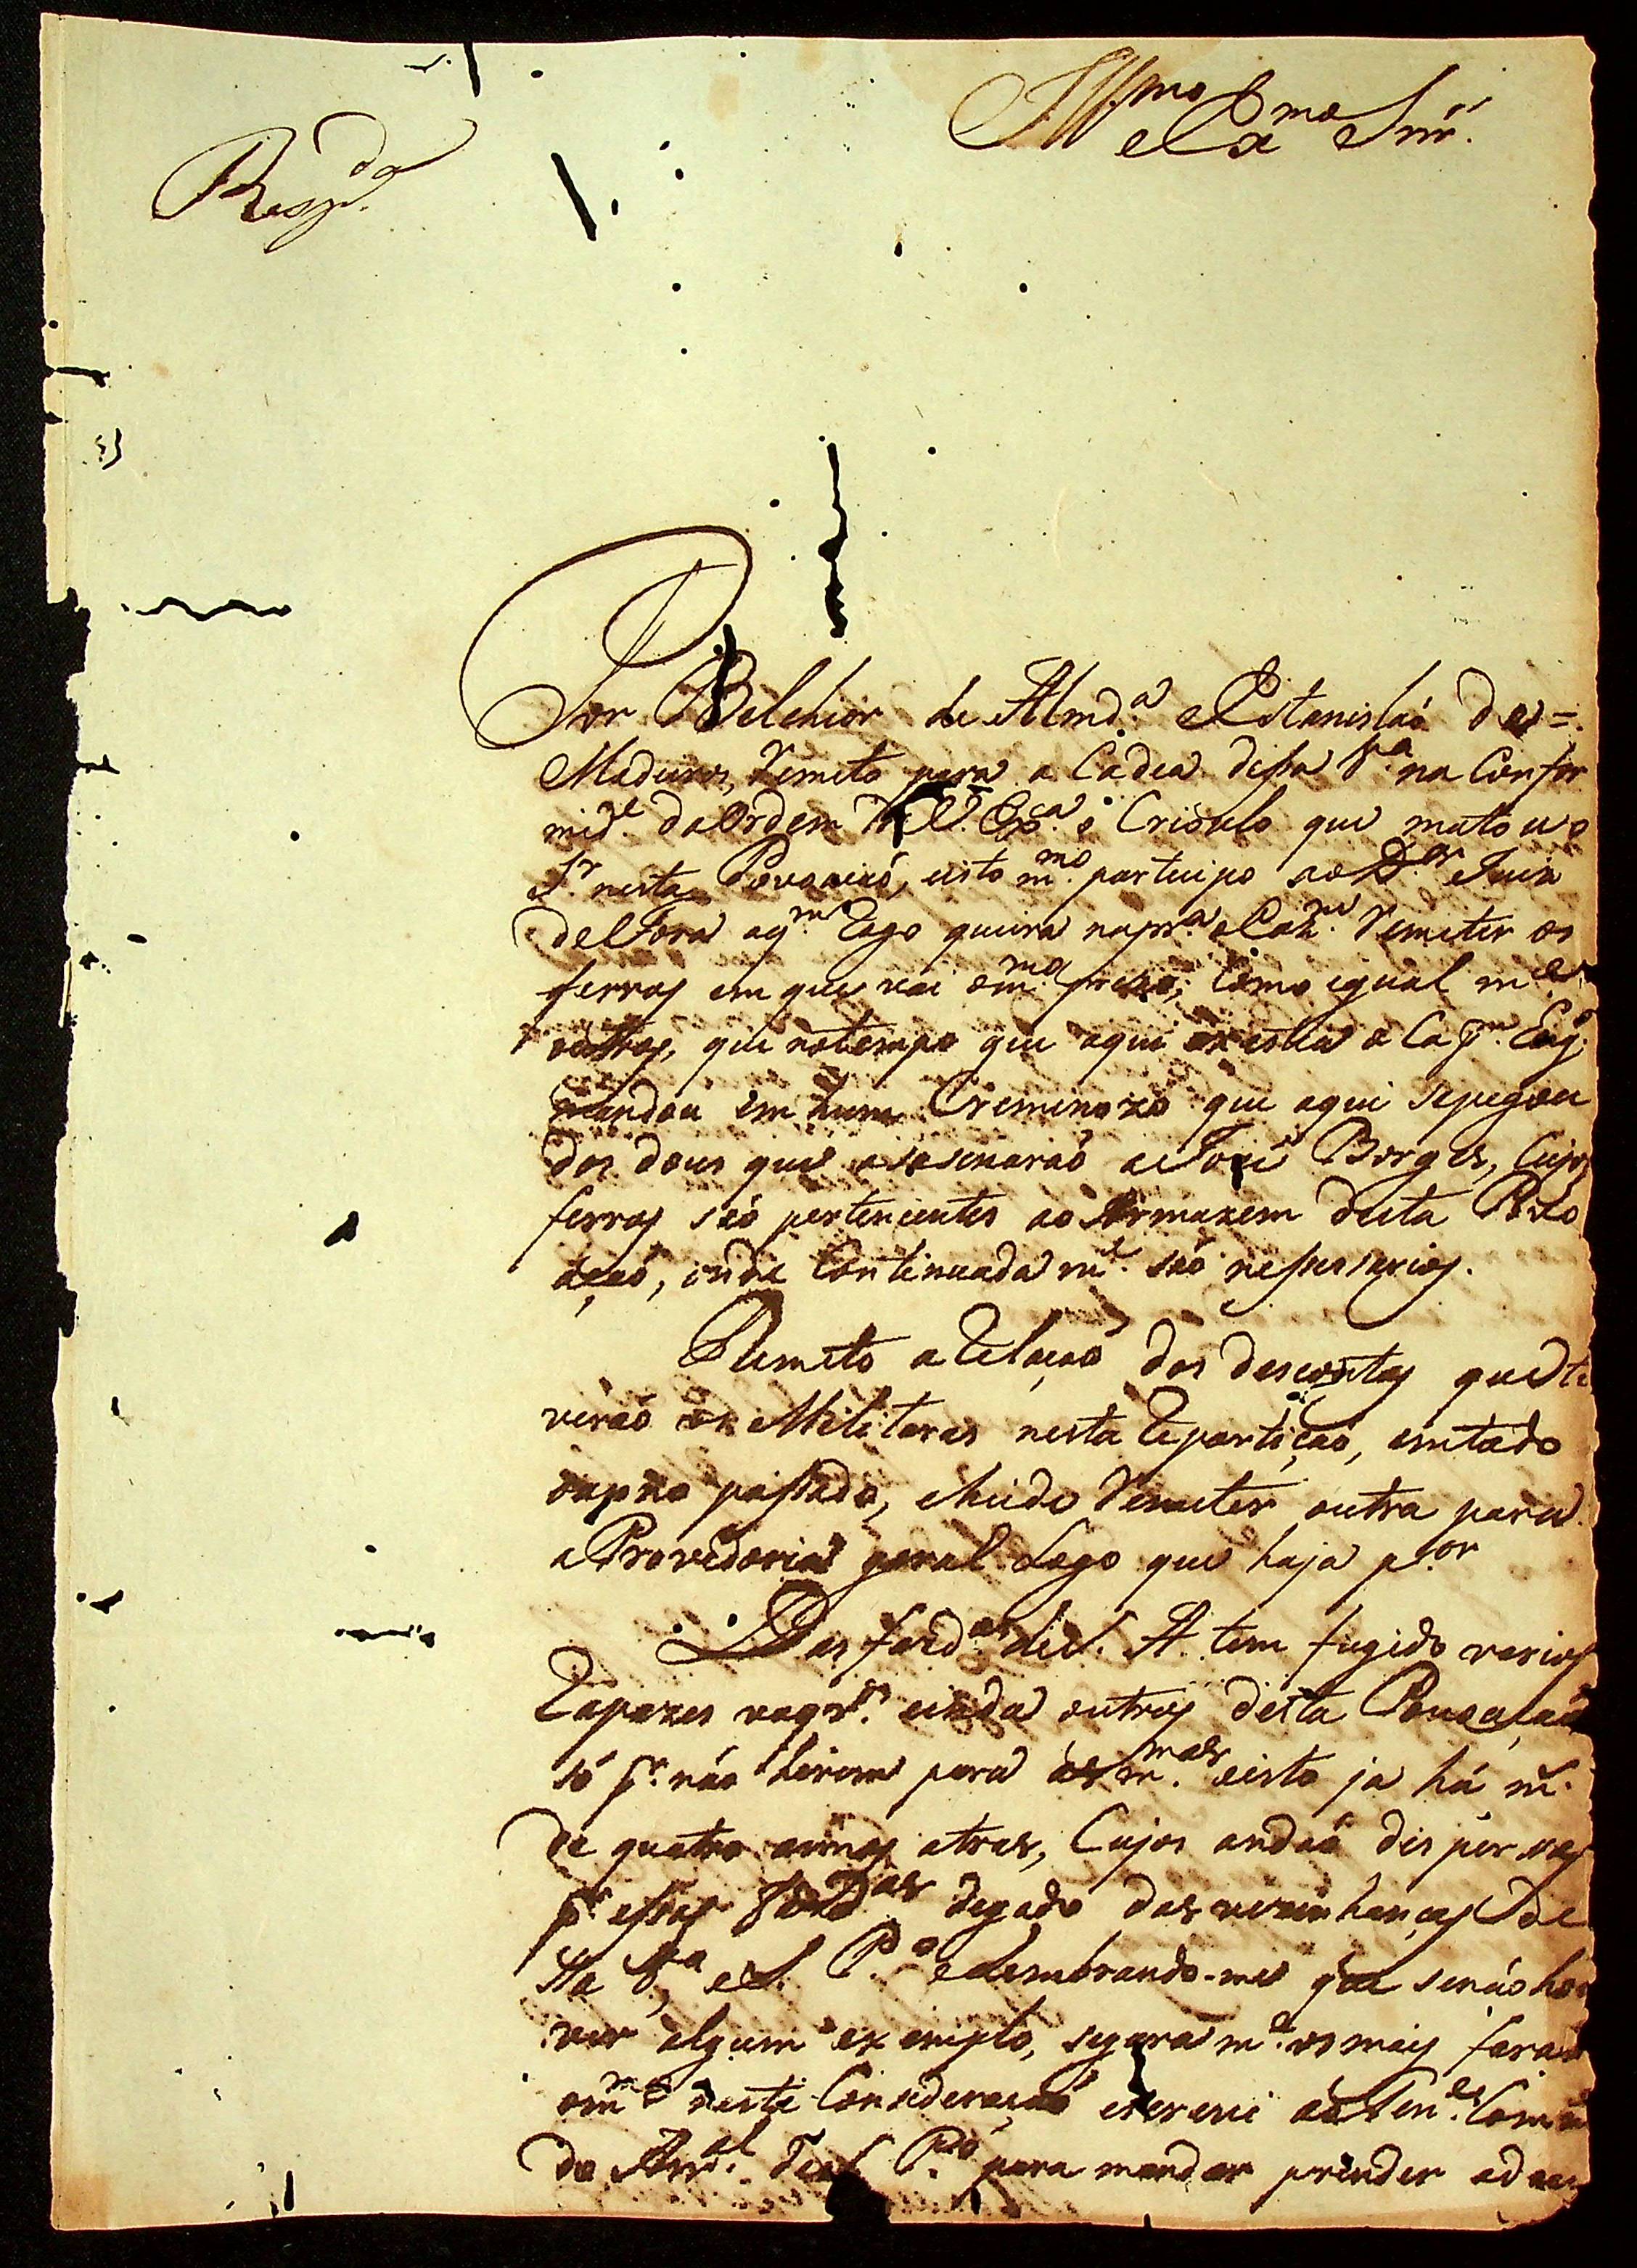 Illmo
e Exmo Snr.
Respda
Por Belchior de Almda. e Estanisláo dos =
Maduros, Remeto para a Cadea dessa Va. na Confor
mide. da Ordem de V. Exa. o Crioulo que matou o
Sr. nesta Povoação, e isto mmo. participo ao Dor. Juis
de Fora aqm. Rogo queira na pra. Remeter os
ferros em que vai o mmo. prezo; Como igual me.
outros, que no tempo que aqui existia o Capm. Eng.
mandou em hum Creminozo que aqui se pegou
dos dous que asasinaraõ a José Borges, Cujos
ferros saõ pertencentes ao Armazem desta Po
açaõ, onde Continuadamte. saõ nessesarios.
Remeto a Relaçaõ dos descontos que ti
veraõ os Militares nesta Repartiçaõ, em todo
o anno passado, e heide Remeter outra para
a Provedoria geral Logo que haja por
Das fazdas. de S. A. tem fugido varios
Rapazes vaqros. e inda outros desta Povoaçaõ
só pr. náo hirem para as mmas. e isto ja há ms.
de quatro annos atras, Cujos andaõ dispersos
pr. essas Fazdas de gado das vezinhanças de
sta Va. e S. Po. e Lembrando-me que senáo hou
ver algum exemplo, seguramte. os mais faraõ
o mmo. nesta Consideraçaõ escrevi ao Tene. Com
do Arral. de S. Po. para mandar prender